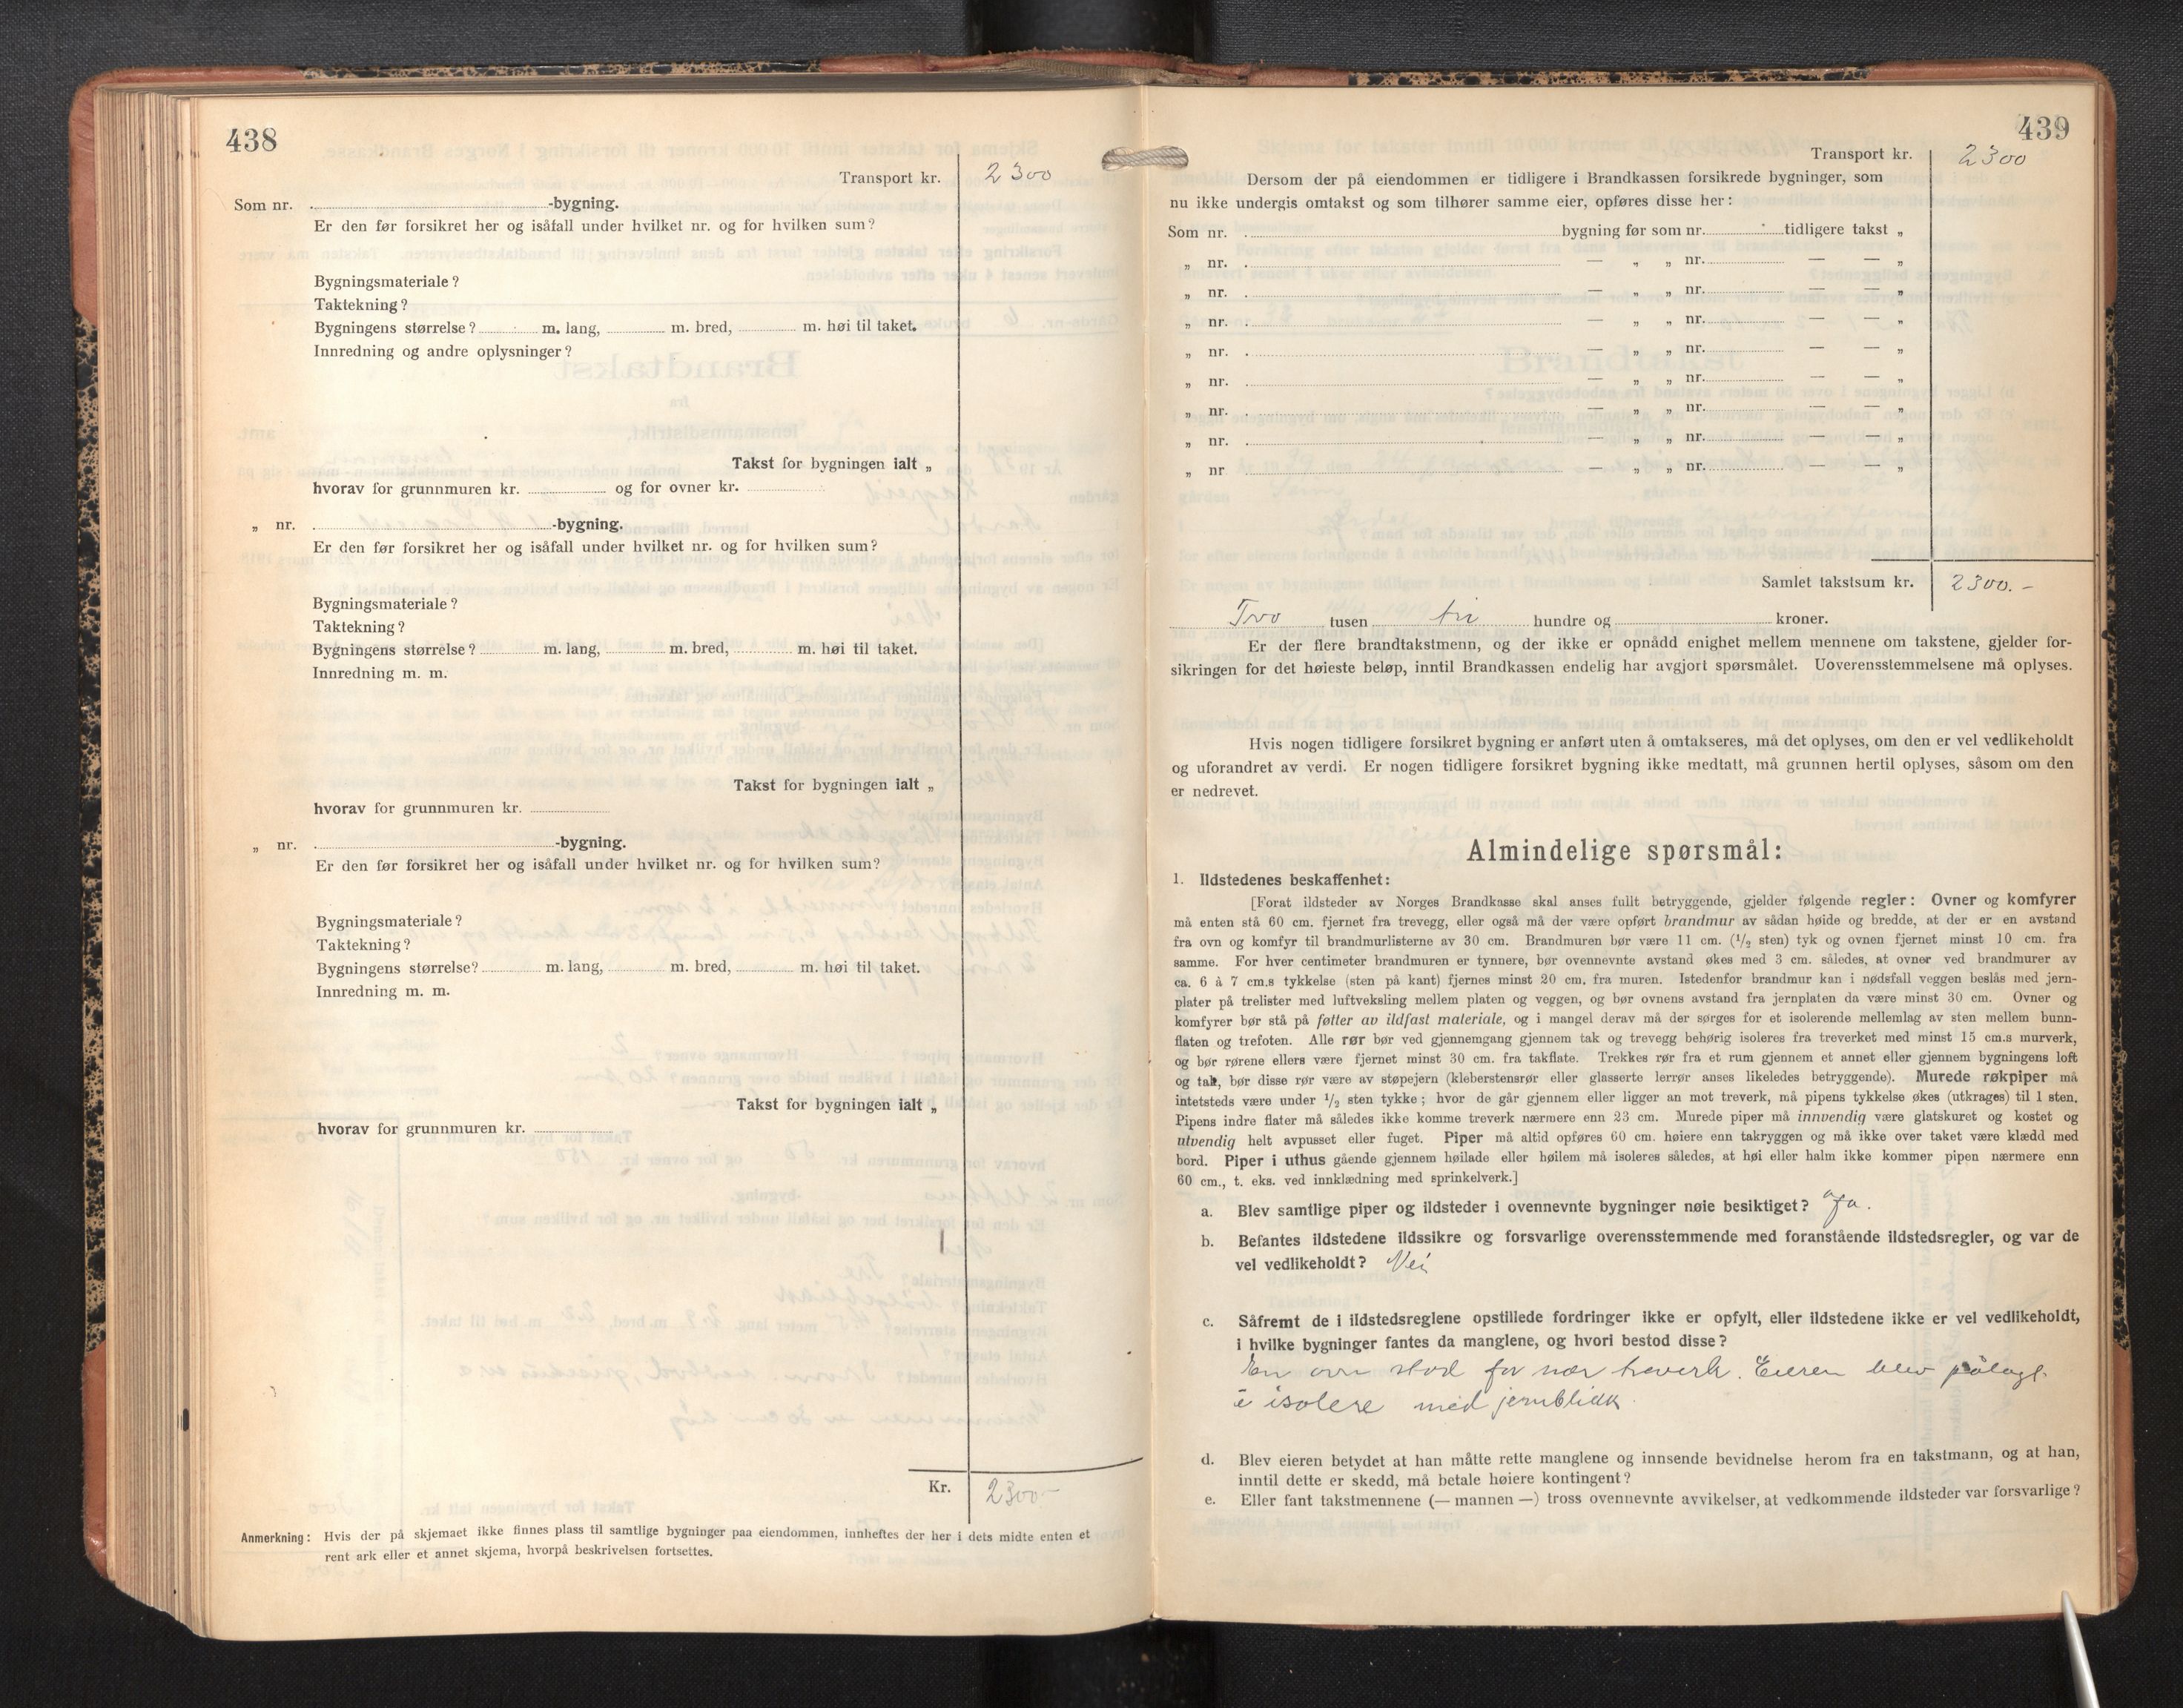 438
Transport kr. 2300
Som nr. -bygning.
Er den før forsikret her og isåfall under hvilket nr. og for hvilken sum?
Bygningsmateriale?
Taktekning?
Bygningens størrelse? m. lang, m. bred, m. høi til taket.
Innredning og andre oplysninger?
Takst for bygningen ialt „
hvorav for grunnmuren kr. og for ovner kr.
„ nr. -bygning.
Er den før forsikret her og isåfall under hvilket nr. og for hvilken sum?
Bygningsmateriale?
Taktekning?
Bygningens størrelse? m. lang, m. bred, m. høi til taket.
Innredning m. m.
Takst for bygningen ialt „
hvorav for grunnmuren kr.
„ nr. -bygning.
Er den før forsikret her og isåfall under hvilket nr. og for hvilken sum?
Bygningsmateriale?
Taktekning?
Bygningens størrelse? m. lang, m. bred, m. høi til taket.
Innredning m. m.
Takst for bygningen ialt „
hvorav for grunnmuren kr.
Kr. 2300-
Anmerkning: Hvis der på skjemaet ikke finnes plass til samtlige bygninger paa eiendommen, innheftes der her i dets midte enten et
rent ark eller et annet skjema, hvorpå beskrivelsen fortsettes.
439
Transport kr. 2300
Dersom der på eiendommen er tidligere i Brandkassen forsikrede bygninger, som
nu ikke undergis omtakst og som tilhører samme eier, opføres disse her:
Som nr. bygning før som nr. tidligere takst „
„ nr. — „ „ nr. — — „
„ nr. — „ „ nr. — — „
„ nr. — „ „ nr. — — „
„ nr. — „ „ nr. — — „
„ nr. — „ „ nr. — — „
„ nr. — „ „ nr. — — „
„ nr. — „ „ nr. — — „
„ nr — „ „ nr. — — „
Samlet takstsum kr. 2300.-
Tvo tusen tri hundre og kroner.
Er der flere brandtakstmenn, og der ikke er opnådd enighet mellem mennene om takstene, gjelder for-
sikringen for det høieste beløp, inntil Brandkassen endelig har avgjort spørsmålet. Uoverensstemmelsene må oplyses.
Hvis nogen tidligere forsikret bygning er anført uten å omtakseres, må det oplyses, om den er vel vedlikeholdt
og uforandret av verdi. Er nogen tidligere forsikret bygning ikke medtatt, må grunnen hertil oplyses, såsom om den
er nedrevet.
Almindelige spørsmål:
1. Ildstedenes beskaffenhet:
[Forat ildsteder av Norges Brandkasse skal anses fullt betryggende, gjelder følgende regler: Ovner og komfyrer
må enten stå 60 cm. fjernet fra trevegg, eller også må der være opført brandmur av sådan høide og bredde, at der er en avstand
fra ovn og komfyr til brandmurlisterne av 30 cm. Brandmuren bør være 11 cm. (1/2 sten) tyk og ovnen fjernet minst 10 cm. fra
samme. For hver centimeter brandmuren er tynnere, bør ovennevnte avstand økes med 3 cm. således, at ovner ved brandmurer av
ca. 6 à 7 cm.s tykkelse (sten på kant) fjernes minst 20 cm. fra muren. Istedenfor brandmur kan i nødsfall veggen beslås med jern-
plater på trelister med luftveksling mellem platen og veggen, og bør ovnens avstand fra jernplaten da være minst 30 cm. Ovner og
komfyrer bør stå på føtter av ildfast materiale, og i mangel derav må der sørges for et isolerende mellemlag av sten mellem bunn-
flaten og trefoten. Alle rør bør ved gjennemgang gjennem tak og trevegg behørig isoleres fra treverket med minst 15 cm.s murverk,
og bør rørene ellers være fjernet minst 30 cm. fra takflate. Trekkes rør fra et rum gjennem et annet eller gjennem bygningens loft
og tak, bør disse rør være av støpejern (kleberstensrør eller glasserte lerrør anses likeledes betryggende). Murede røkpiper må
intetsteds være under 1/2 sten tykke; hvor de går gjennem eller ligger an mot treverk, må pipens tykkelse økes (utkrages) til 1 sten.
Pipens indre flater må således ikke komme treverk nærmere enn 23 cm. Murede piper må innvendig være glatskuret og kostet og
utvendig helt avpusset eller fuget. Piper må altid opføres 60 cm. høiere enn takryggen og må ikke over taket være klædd med
bord. Piper i uthus gående gjennem høilade eller høilem må isoleres således, at høi eller halm ikke kommer pipen nærmere enn
60 cm., t. eks. ved innklædning med sprinkelverk.]
a. Blev samtlige piper og ildsteder i ovennevnte bygninger nøie besiktiget? Ja.
b. Befantes ildstedene ildssikre og forsvarlige overensstemmende med foranstående ildstedsregler, og var de
vel vedlikeholdt? Nei
c. Såfremt de i ildstedsreglene opstillede fordringer ikke er opfylt, eller ildstedene ikke er vel vedlikeholdt,
i hvilke bygninger fantes da manglene, og hvori bestod disse?
En ovn stod for nær treverk. Eieren blev pålagt
å isolere med jernblikk.
d. Blev eieren betydet at han måtte rette manglene og innsende bevidnelse herom fra en takstmann, og at han,
inntil dette er skedd, må betale høiere kontingent?
e. Eller fant takstmennene (— mannen —) tross ovennevnte avvikelser, at vedkommende ildsteder var forsvarlige?